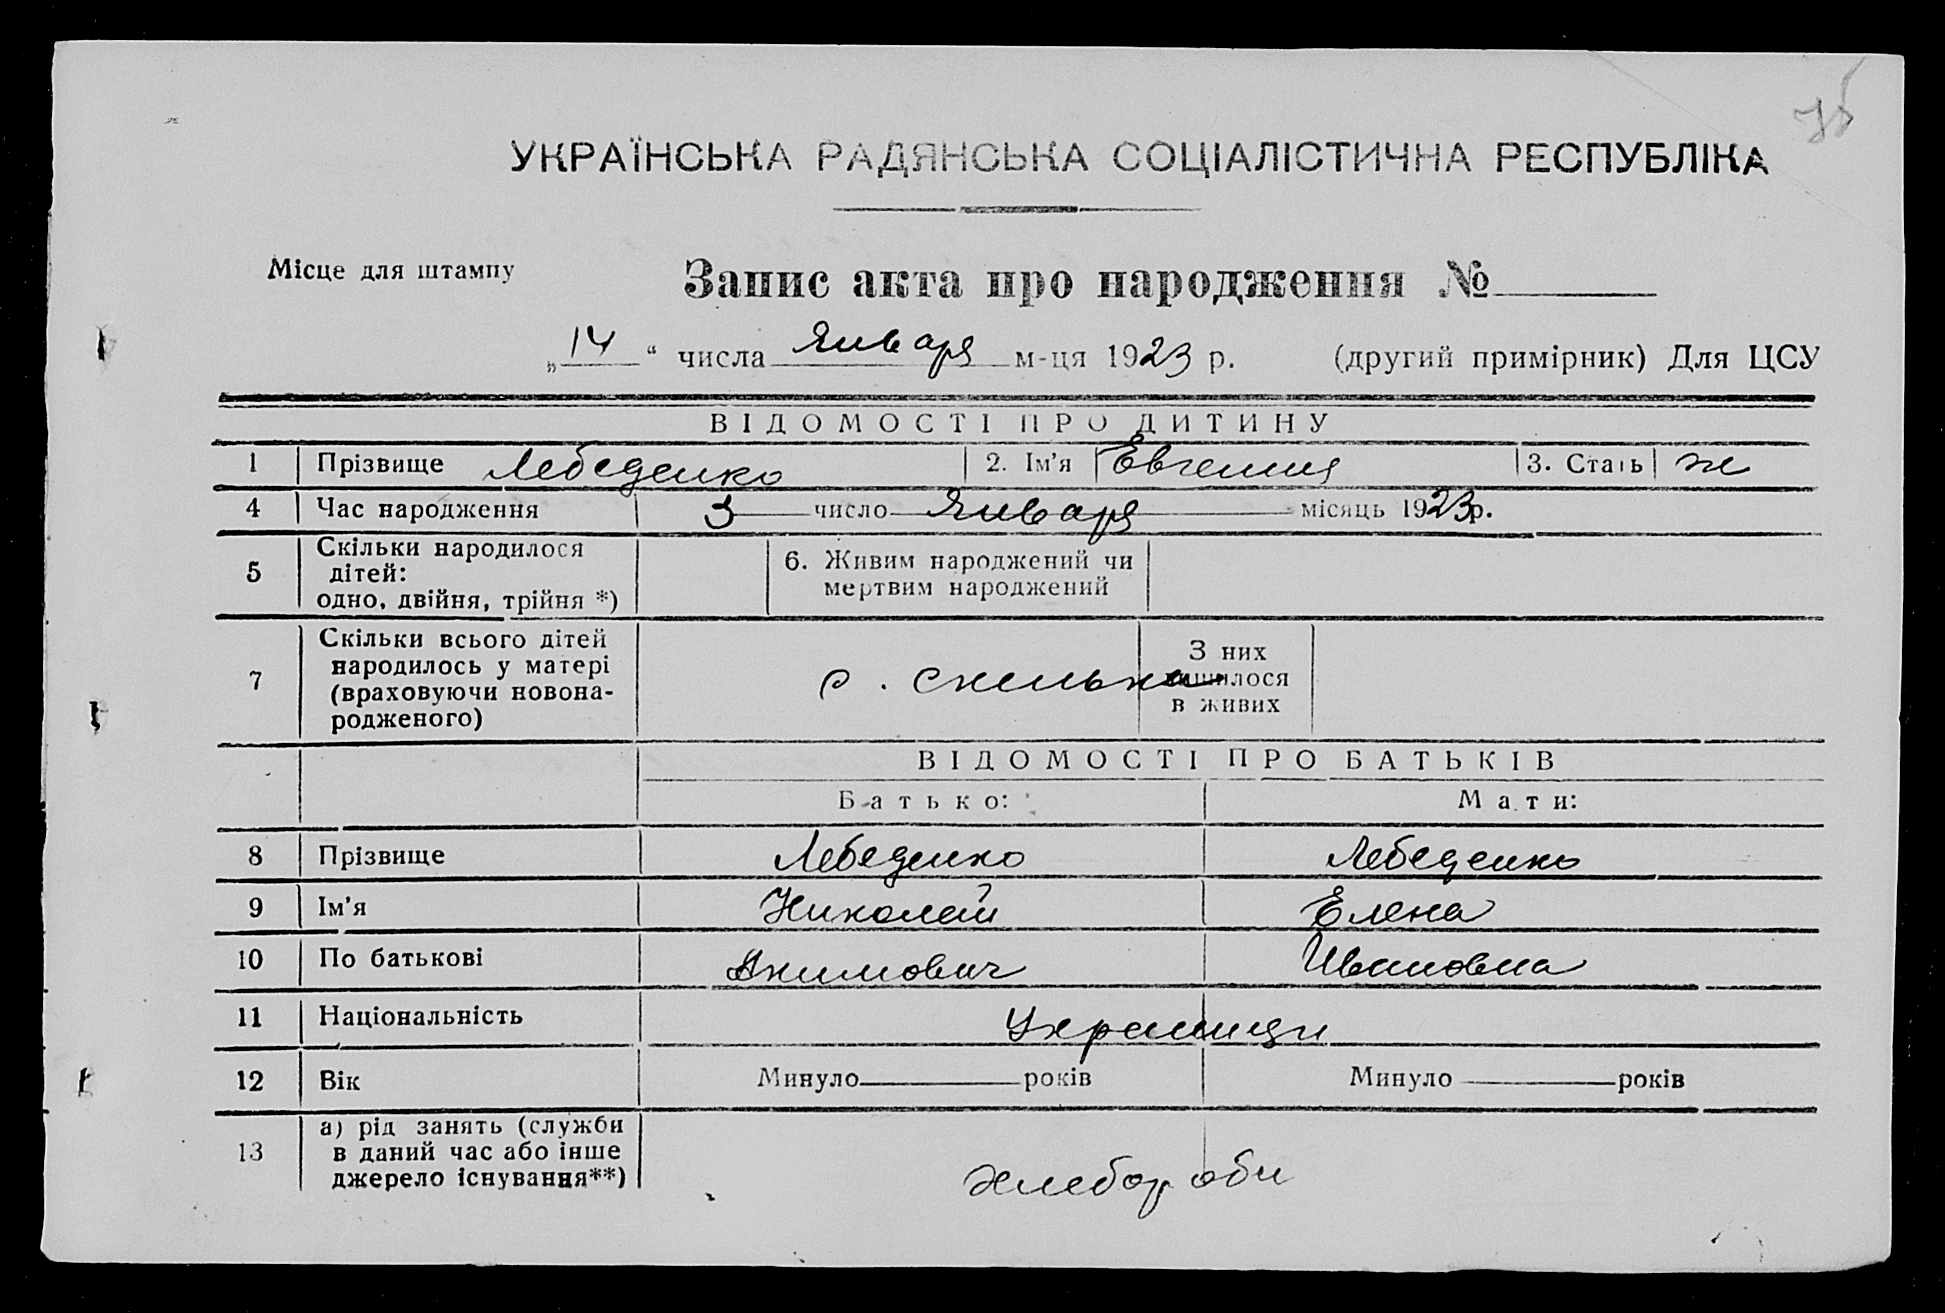 75
УКРАЇНСЬКА РАДЯНСЬКА СОЦІАЛІСТИЧНА РЕСПУБЛІКА
Місце для штампу
Запис акта про народження №
„14“ числа Января м-ця 1923 р. (другий примірник) Для ЦСУ
ВІДОМОСТІ ПРО ДИТИНУ
1 Прізвище Лебеденко 2. Ім'я Евгения 3. Стать ж
4 Час народження 3 число Января місяць 1923 р.
5 Скільки народилося дітей: одно, двійня, трійня *) 6. Живим народжений чи мертвим народжений
7 Скільки всього дітей народилось у матері (враховуючи новонародженого) с. Скелька З них лишилося в живих
ВІДОМОСТІ ПРО БАТЬКІВ
Батько: Мати:
8 Прізвище Лебеденко Лебеденко
9 Ім'я Николай Елена
10 По батькові Акимович Ивановна
11 Національність Украинци
12 Вік Минуло років Минуло років
13 а) рід занять (служби в даний час або інше джерело існування**) Хлебороби